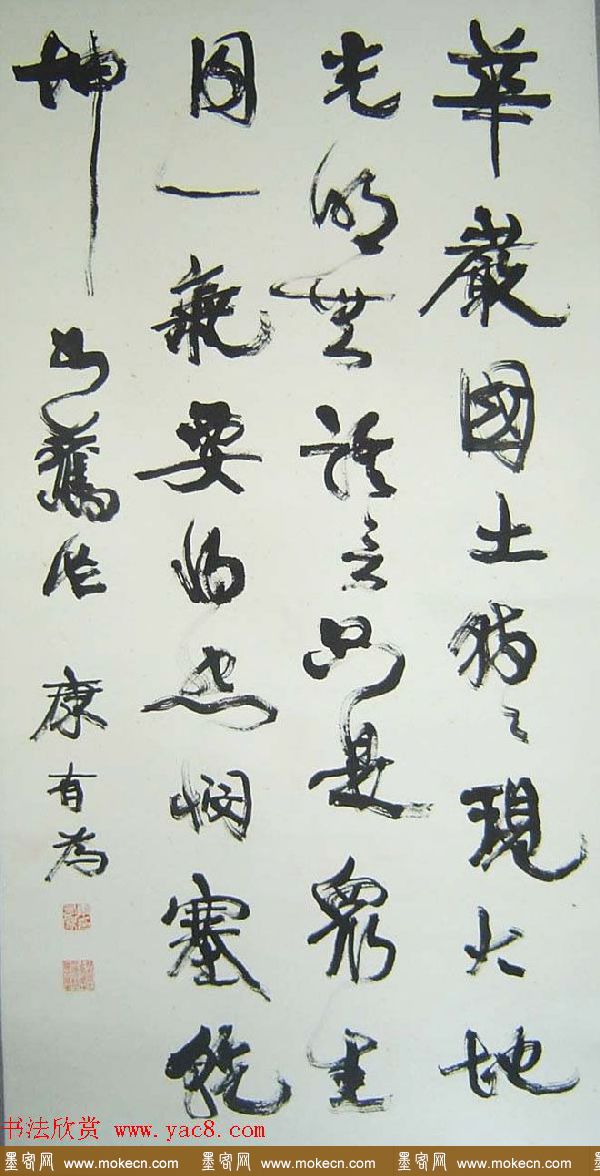 華嚴國土時〻現大地
光明無語言只是眾生
同一氣要將悲憫塞乾
坤 舊作 康有為
书法欣赏 www.yac8.com
墨客网 www.mokecn.com 墨客网 www.mokecn.com 墨客网 www.mokecn.com